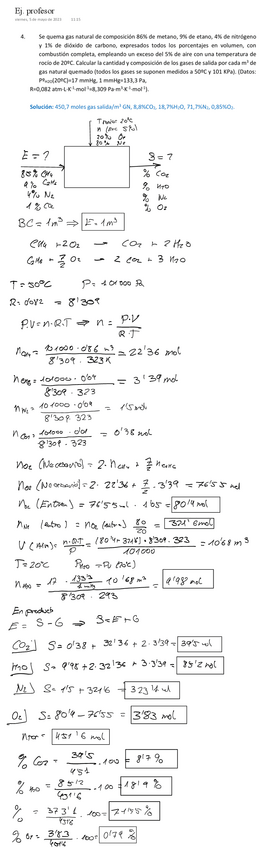 Ej. profesor
viernes, 5 de mayo de 2023 11:15
4. Se quema gas natural de composición 86% de metano, 9% de etano, 4% de nitrógeno
y 1% de dióxido de carbono, expresados todos los porcentajes en volumen, con
combustión completa, empleando un exceso del 5% de aire con una temperatura de
rocío de 20ºC. Calcular la cantidad y composición de los gases de salida por cada m³ de
gas natural quemado (todos los gases se suponen medidos a 50ºC y 101 KPa). (Datos:
(20ºC)=17 mmHg, 1 mmHg=133,3 Pa,
R=0,082 atm·L·K⁻¹·mol⁻¹=8,309 Pa·m³·K⁻¹·mol⁻¹).
Solución: 450,7 moles gas salida/m³ GN, 8,8%CO₂, 18,7%H₂O, 71,7%N₂, 0,85%O₂.
20% O₂
E = ? S = ?
% CO₂
9% C₂H₆ % H₂O
4% N₂ % N₂
1% CO₂ % O₂
BC = 1m³ ⇒ E = 1m³
CH₄ + 2O₂ → CO₂ + 2H₂O
C₂H₆ + 7/2 O₂ → 2CO₂ + 3H₂O
T = 50ºC P = 101000 Pa
R = 0'082 = 8'309
P.V = n.R.T ⇒ n = P.V / R.T
n CH₄ = 101000 · 0'86 m³ / 8'309 · 323K = 32'36 mol
= 101000 · 0'09 / 8'309 · 323 = 3'39 mol
n N₂ = / 8'309 · 323 = 1'5 mol
n CO₂ = 101000 · 0'01 / 8'309 · 323 = 0'38 mol
n O₂ (Necesario) = 2 · n CH₄ + 7/2 n C₂H₆
n O₂ (Necesario) = 2 · 32'36 + 7/2 · 3'39 = 76'55 mol
(Entran) = 76'55 · 1'05 = 80'4 mol
n N₂ (entra) = n O₂ (entra) · 80/20 = 321'6 mol
V (Aire) = n.R.T / P = (80'4 + 321'6) · 8'309 · 323 / 101000 = 10'68 m³
T = 20ºC
n H₂O = 10'68 m³ / 8'309 · 293 = 9'98 mol
En producto
E = S - G ⇒ S = E + G
CO₂] S = 0'38 + 32'36 + 2 · 3'39 = 39'5 mol
H₂O] S = 9'98 + 2 · 32'36 + 3 · 3'39 = 85'2 mol
N₂] S = 1'5 + 321'6 =
O₂] S = 80'4 - 76'55 = 3'83 mol
= 451'6 mol
% CO₂ = 39'5 / 451 · 100 = 8'7 %
% H₂O = 85'2 / 451'6 · 100 = 18'9 %
% = / 451'6 · 100 =
% O₂ = 3'83 / 451'6 · 100 =